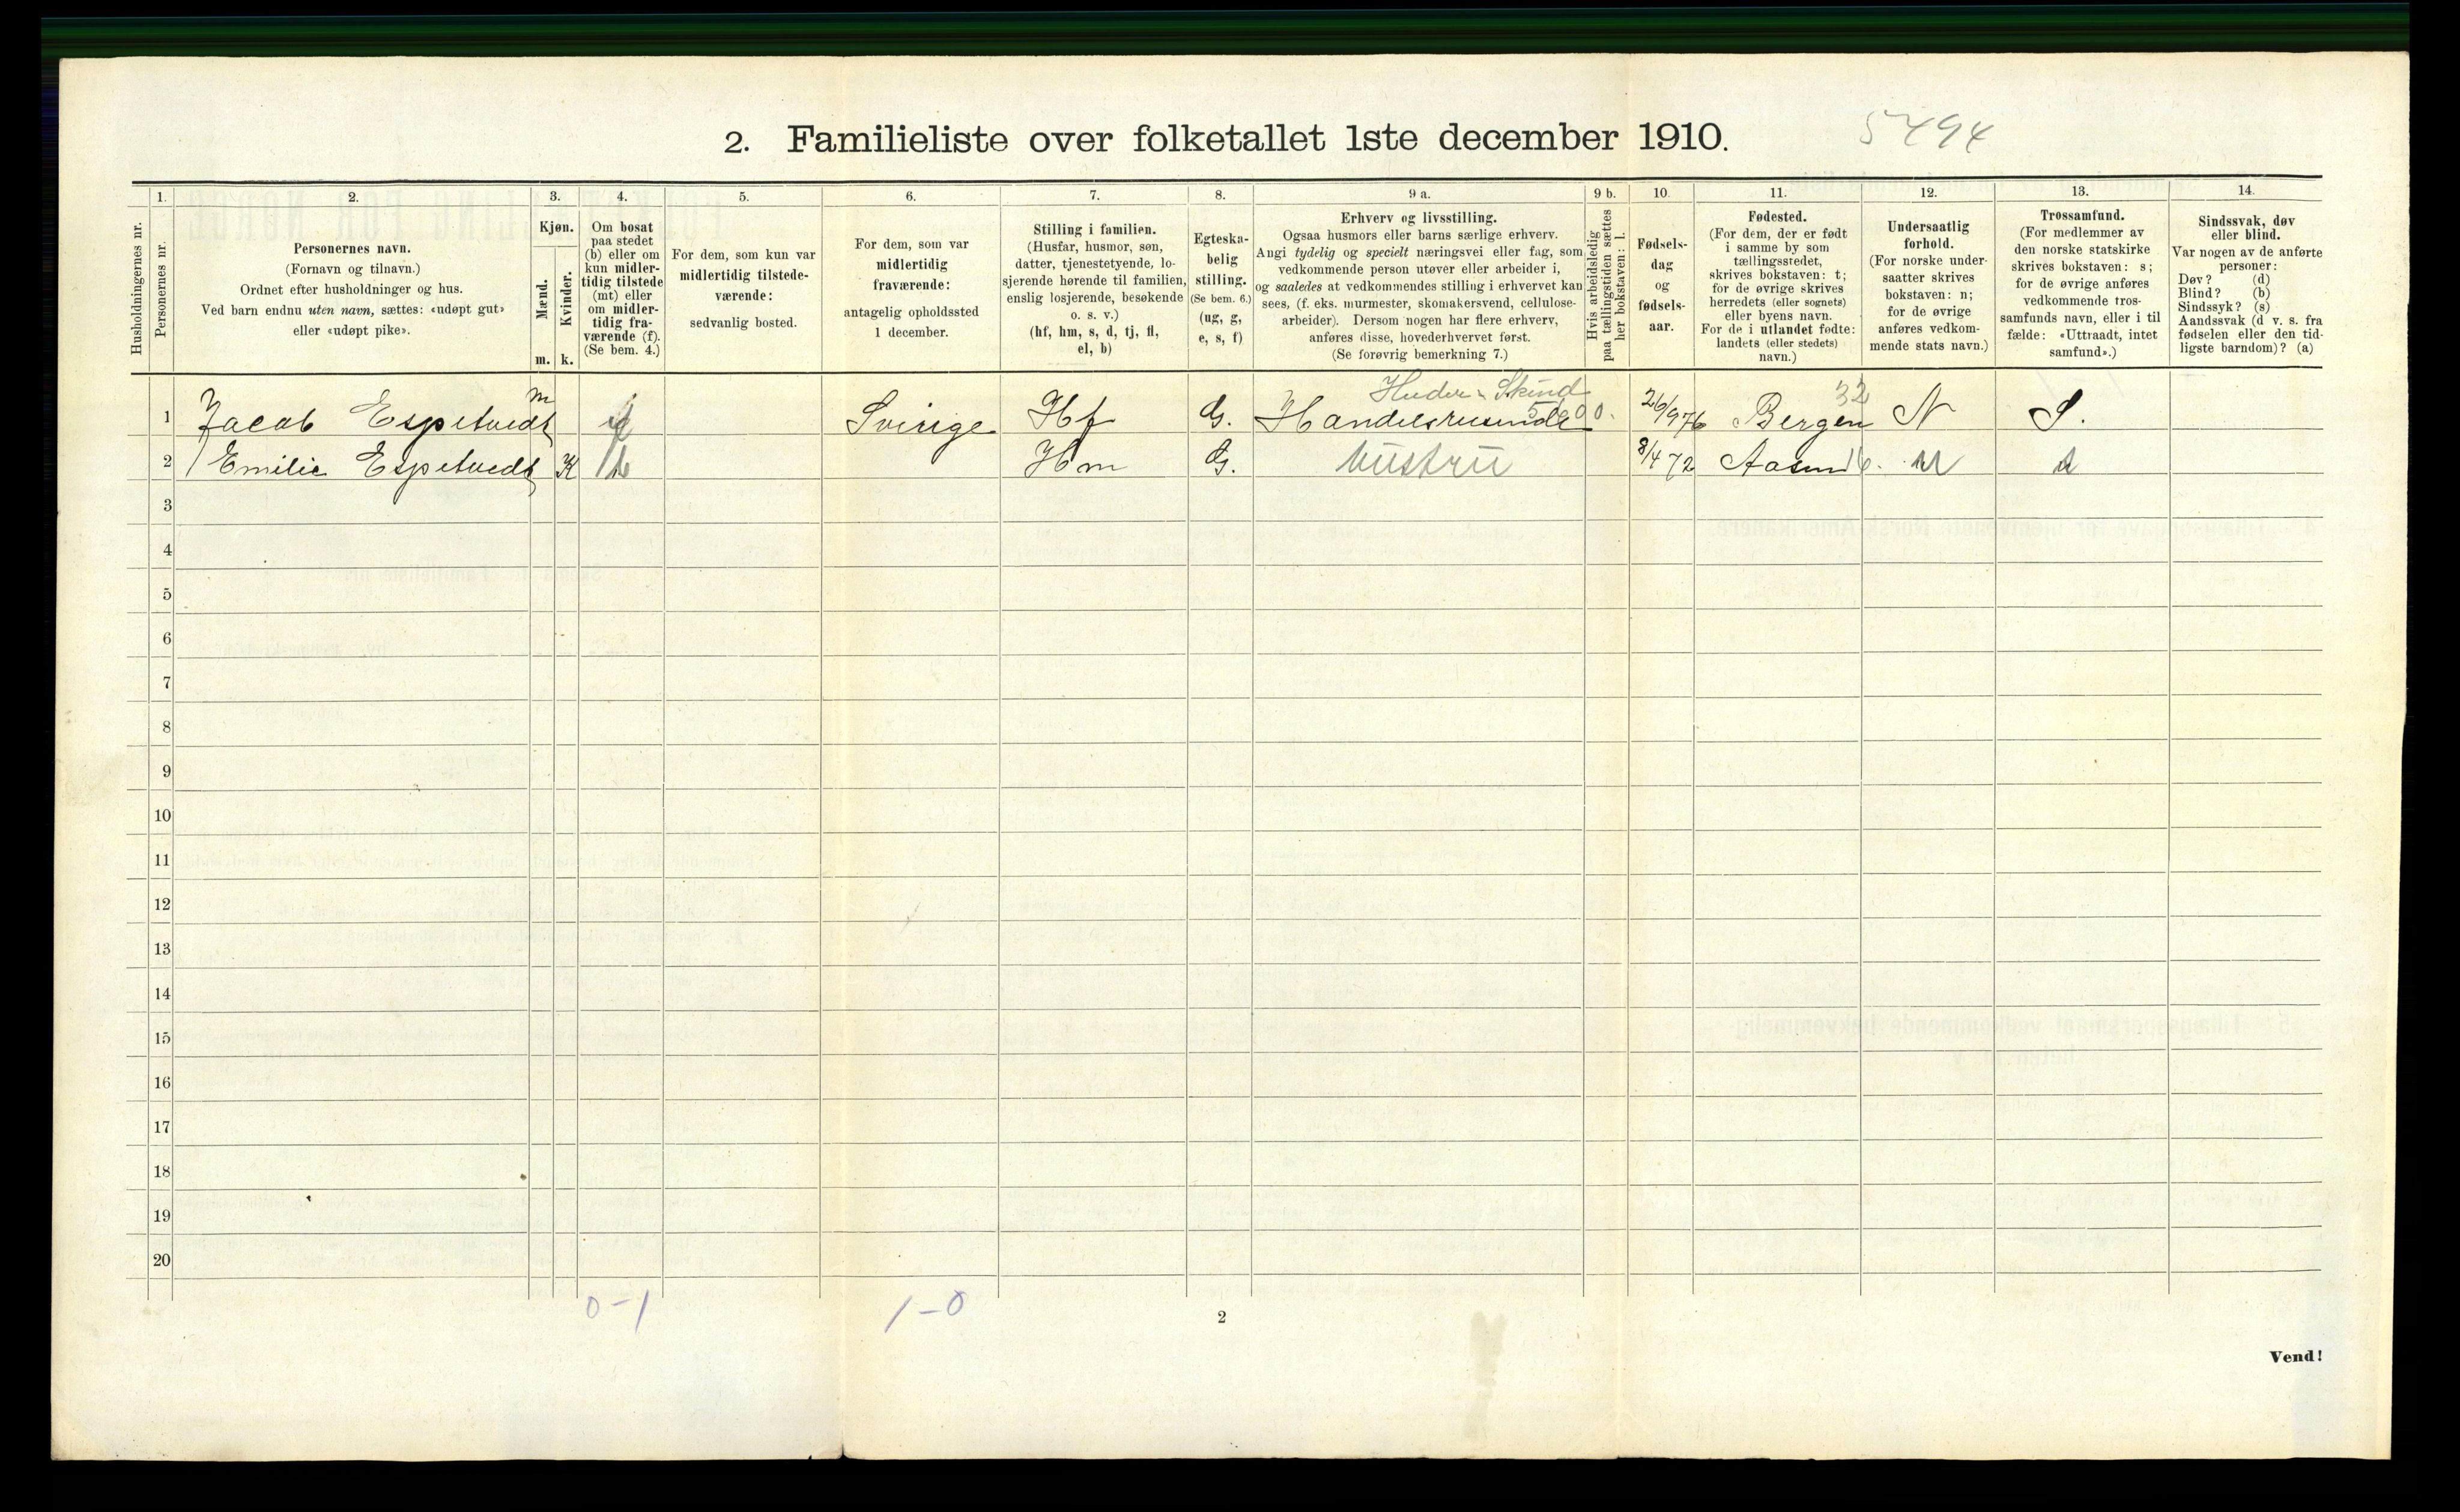 2. Familieliste over folketallet 1ste december 1910.
5494
Husholdningernes nr.
1.
Personernes nr.
2.
Personernes navn.
(Fornavn og tilnavn.)
Ordnet efter husholdninger og hus.
Ved barn endnu uten navn, sættes: «udøpt gut»
eller «udøpt pike».
3.
Kjøn.
Mænd.
Kvinder.
m. k.
4.
Om bosat
paa stedet
(b) eller om
kun midler-
tidig tilstede
(mt) eller
om midler-
tidig fra-
værende (f).
(Se bem. 4.)
5.
For dem, som kun var
midlertidig tilstede-
værende:
sedvanlig bosted.
6.
For dem, som var
midlertidig
fraværende:
antagelig opholdssted
1 december.
7.
Stilling i familien.
(Husfar, husmor, søn,
datter, tjenestetyende, lo-
sjerende hørende til familien,
enslig losjerende, besøkende
o. s. v.)
(hf, hm, s, d, tj, fl,
el, b)
8.
Egteska-
belig
stilling.
(Se bem. 6.)
(ug, g,
e, s, f)
9 a.
Erhverv og livsstilling.
Ogsaa husmors eller barns særlige erhverv.
Angi tydelig og specielt næringsvei eller fag, som
vedkommende person utøver eller arbeider i,
og saaledes at vedkommendes stilling i erhvervet kan
sees, (f. eks. murmester, skomakersvend, cellulose-
arbeider). Dersom nogen har flere erhverv,
anføres disse, hovederhvervet først.
(Se forøvrig bemerkning 7.)
9 b.
Hvis arbeidsledig
paa tællingstiden sættes
her bokstaven: l.
10.
Fødsels-
dag
og
fødsels-
aar.
11.
Fødested.
(For dem, der er født
i samme by som
tællingsstedet,
skrives bokstaven: t;
for de øvrige skrives
herredets (eller sognets)
eller byens navn.
For de i utlandet fødte:
landets (eller stedets)
navn.)
12.
Undersaatlig
forhold.
(For norske under-
saatter skrives
bokstaven: n;
for de øvrige
anføres vedkom-
mende stats navn.)
13.
Trossamfund.
(For medlemmer av
den norske statskirke
skrives bokstaven: s;
for de øvrige anføres
vedkommende tros-
samfunds navn, eller i til
fælde: «Uttraadt, intet
samfund».)
14.
Sindssvak, døv
eller blind.
Var nogen av de anførte
personer:
Døv? (d)
Blind? (b)
Sindssyk? (s)
Aandssvak (d v. s. fra
fødselen eller den tid-
ligste barndom)? (a)
Huder - Skind 32
1 Jacob Espetvedt m f Sverige Hf G. Handelsreisende 26/9 76 Bergen N S.
2 Emilie Espetvedt K b Hm G. hustru 8/4 72 n s
3
4
5
6
7
8
9
10
11
12
13
14
15
16
17
18
19
20
0-1 1-0
2
Vend!